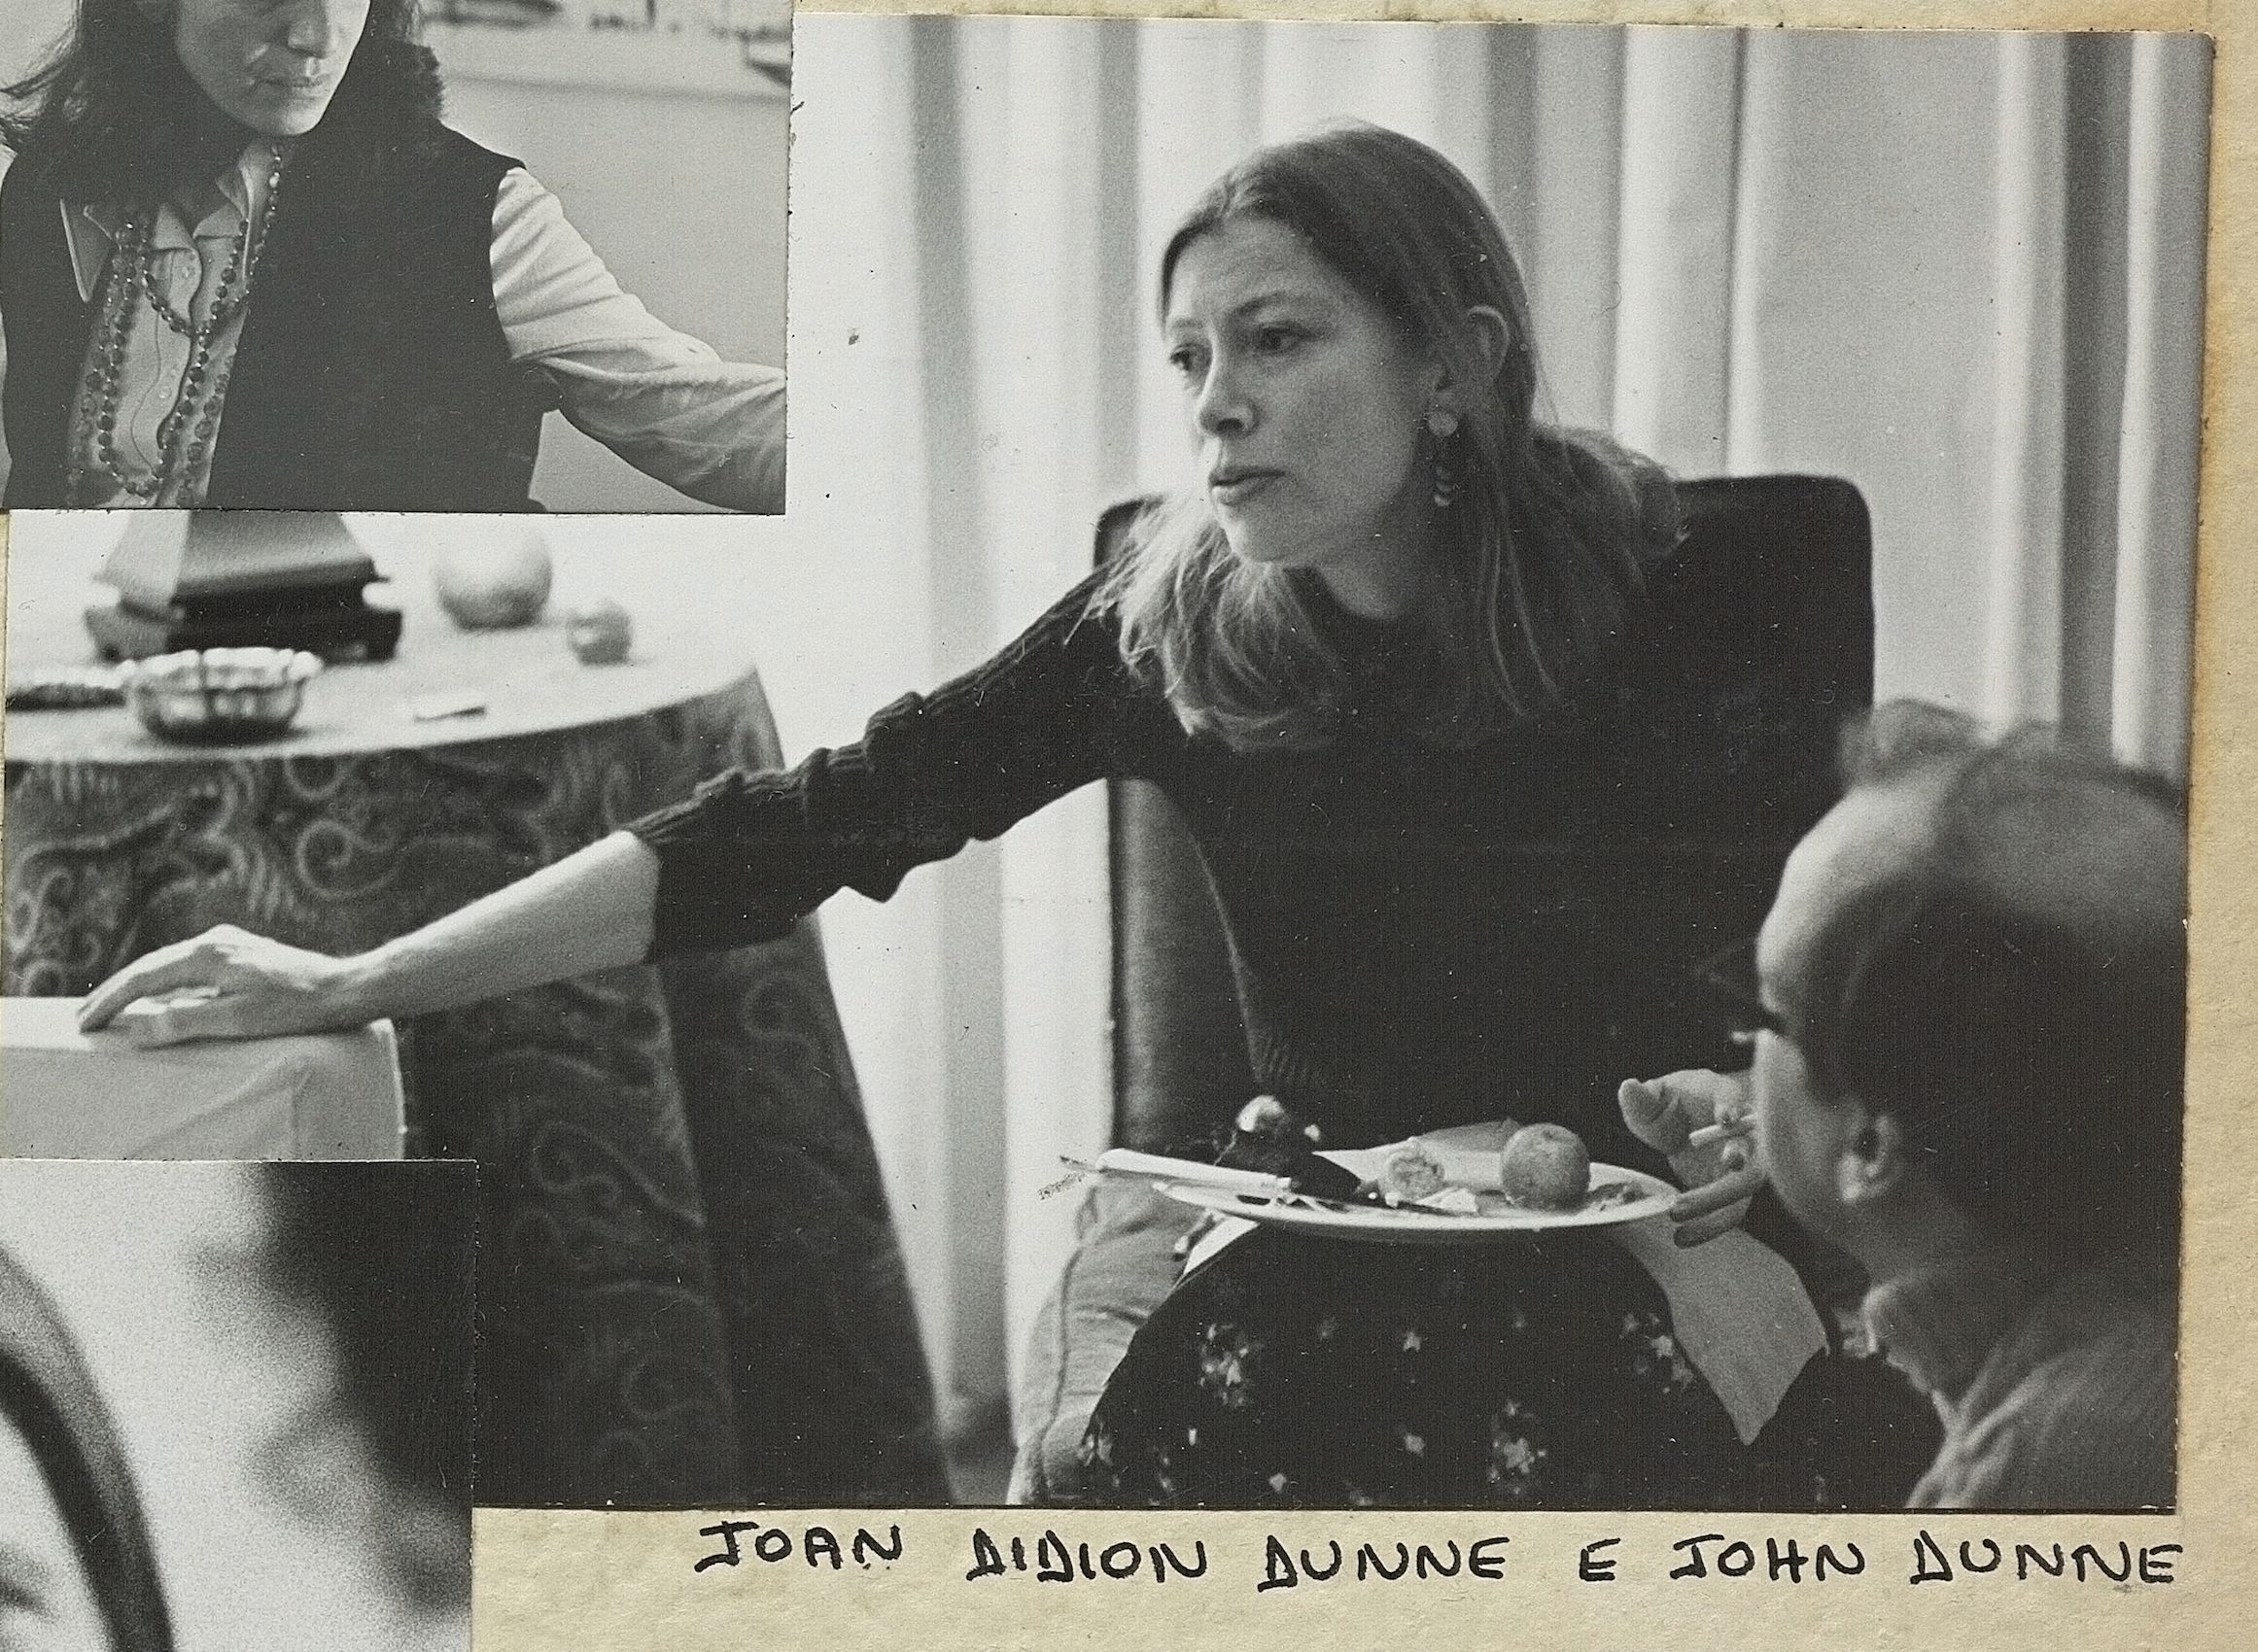 JOAN DIDION DUNNE E JOHN DUNNE